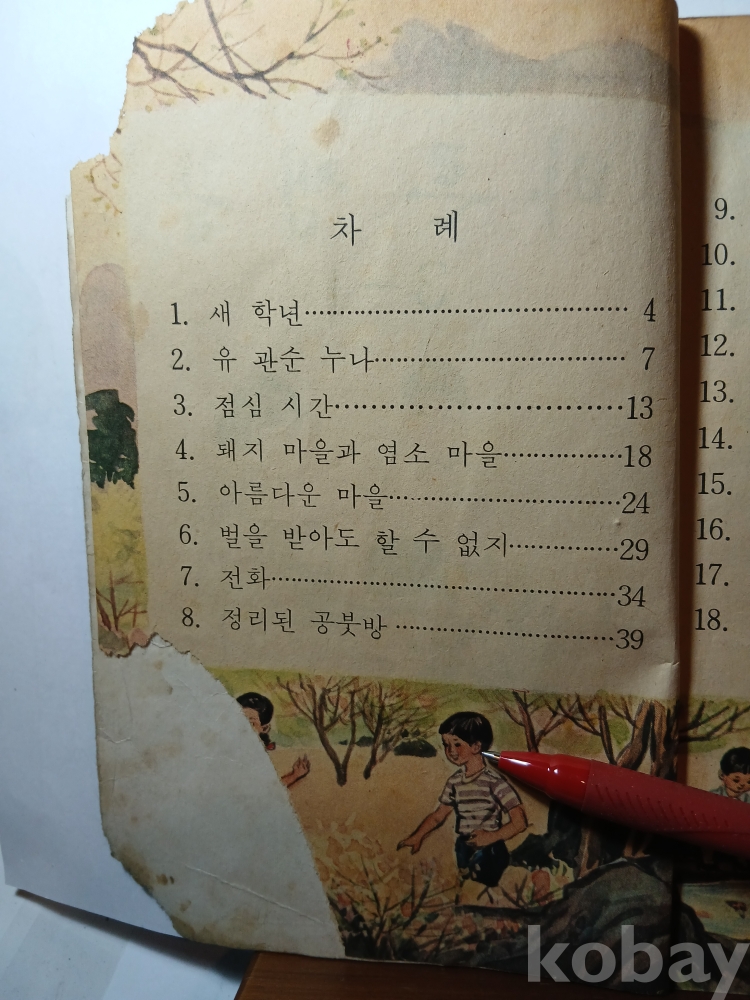 차 례
1. 새 학년 4
2. 유 관순 누나 7
3. 점심 시간 13
4. 돼지 마을과 염소 마을 18
5. 아름다운 마을 24
6. 벌을 받아도 할 수 없지 29
7. 전화 34
8. 정리된 공붓방 39
9.
10.
11.
12.
13.
14.
15.
16.
17.
18.
kobay